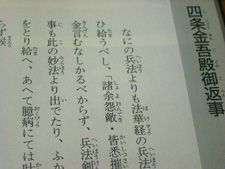 四条金吾殿御返事
なにの兵法よりも法華経の兵
ひ給うべし、「諸余怨敵・皆悉摧
金言むなしかるべからず、兵法剣
事も此の妙法より出でたり、ふか
をとり給へ、あへて臆病にては叶
らず候